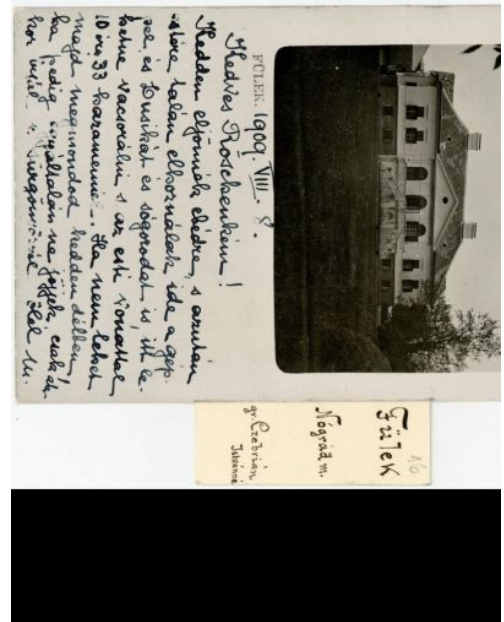 FÜLEK. 1909. VIII. 8.
Kedves Röschenkém!
Kedden eljönnék ebédre, s azután
estére talán elhoználak ide a gép-
pel, és Dusikát és sógorodat is itt le-
hetne vacsorálni s az esti vonattal
10 óra 33 hazamenni. Ha nem lehet
majd megmondod kedden délben,
ha pedig egyáltalán ne jöjjek, csak ak-
kor írjál v. sürgönyözzél Ölel M.
Fülek
Nógrád m.
gr. Czebrián
Istvánné